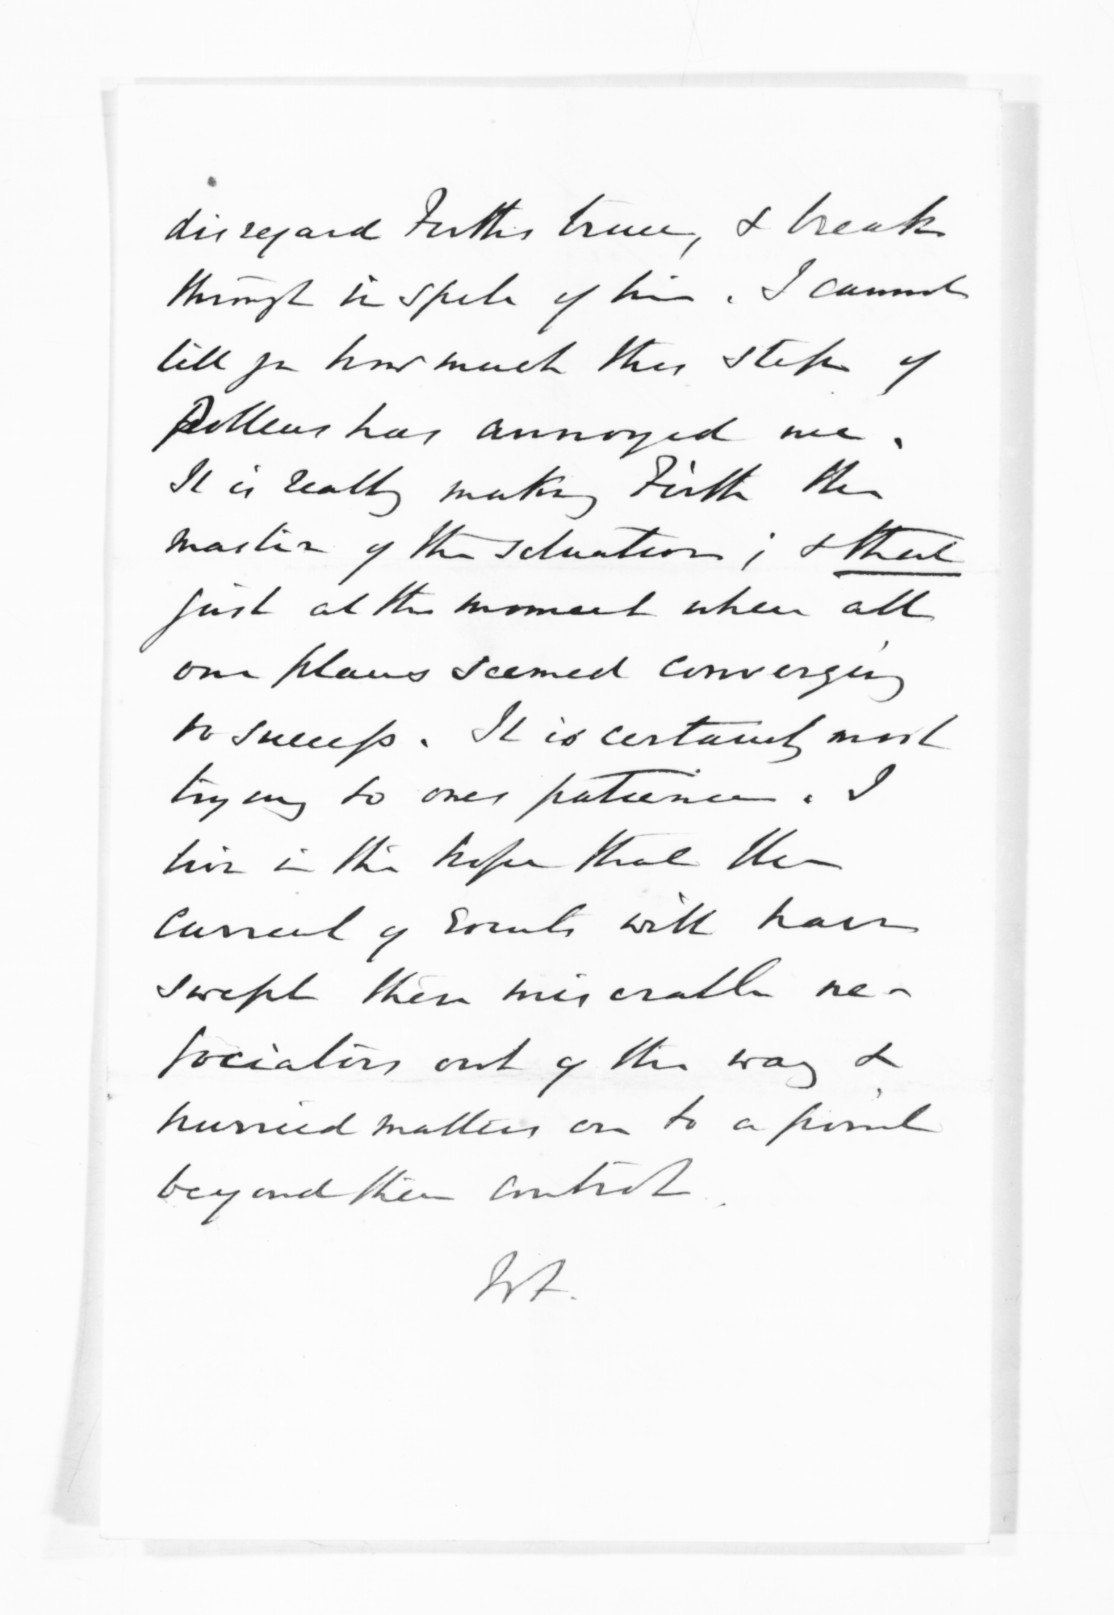 disregard Firths truce, & break
through in spite of him. I cannot
tell you how much this step of
Pollens has annoyed me.
It is really making Firth the
master of the situation; & that
just at the moment when all
our plans seemed converging
to success. It is certainly most
trying to ones patience. I
live in the hope that the
current of events will have
swept these miserable ne-
gociators out of the way &
hurried matters on to a point
beyond their control.